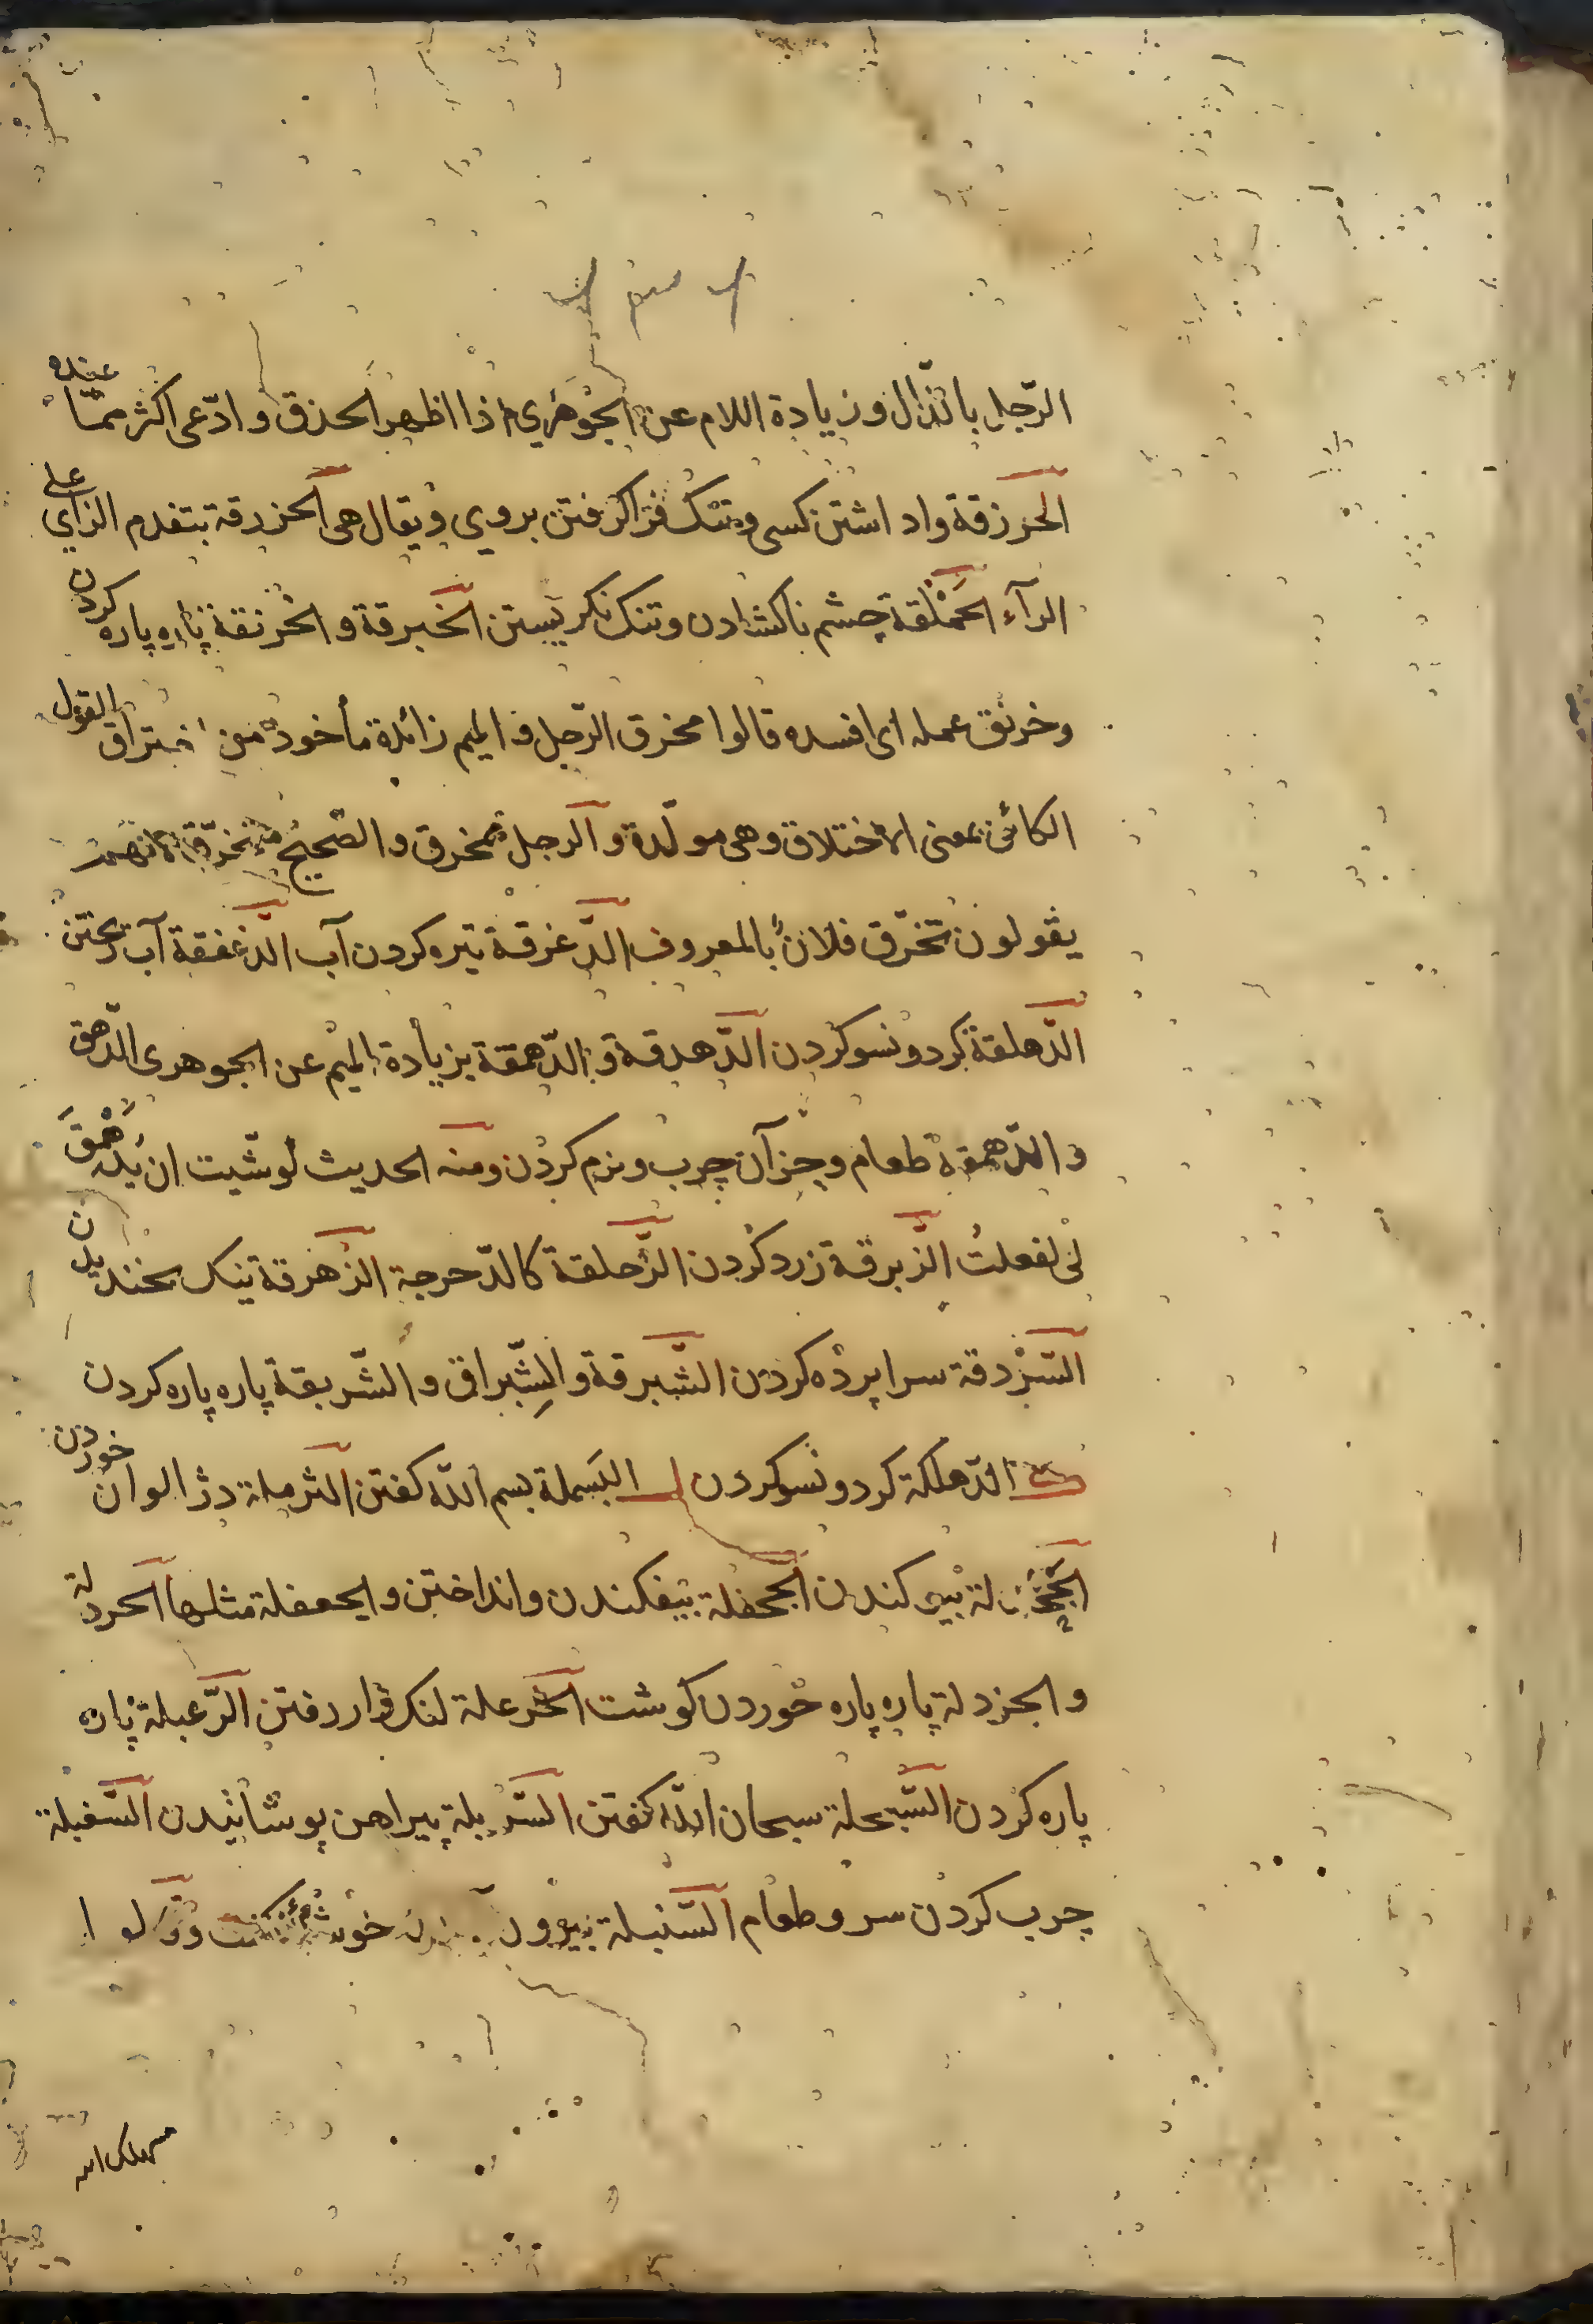 الرّجل بالذّال وزيادة اللام عن الجوهري اذا اظهر الحذق وادّعى اكثر ممّا عنده
الحرزقة واداشتن كسى وتنك فراكرفتن بروى ويقال هى الحزرقة بتقدم الزاي على
الرآء الحَمْلقة چشم ناكشادن وتنك نكريستن الخبرقة والخرنقة پاره پاره كردن
وخرنق عمله اى افسده قالوا مخرق الرّجل فالميم زائدة مأخوذ من اختراق القول
الكائن بمعنى الاختلاق وهى مولّدة والرجل ممخرق والصّحيح متخرّق لانهم
يقولون تخرّق فلان بالمعروف الدّغرقة تيره كردن آب الدّغفقة آب ريختن
الدّهلقة كرد ونسو كردن الدّهدقة والدّهمقة بزيادة الميم عن الجوهرى الدّهق
والدّهمقة طعام وجز آن چرب ونرم كردن ومنه الحديث لو شيت ان يُدَهْمَقَ
لى لفعلتُ الزّبرقة زرد كردن الزّحلقة كالدّحرجة الزهزقة نيك خنديدن
السّرْدقة سراپرده كردن الشّبرقة والشِّبراق والشّربقة پاره پاره كردن
الدّهلكة كرد ونسو كردن ل البَسملة بسم الله كفتن الثرملة دژالوان خوردن
بيوكندن الجحفلة بيفكندن وانداختن والجعفلة مثلها الخردلة
والجزدلة پاره پاره خوردن كوشت الخزعلة لنك وار رفتن الرّعبلة پاره
پاره كردن السّبحلة سبحان اللّه كفتن السّربلة پيراهن پوشانيدن السّغبلة
چرب كردن سر وطعام السّنبلة بيرون خوشه كشت وقالوا